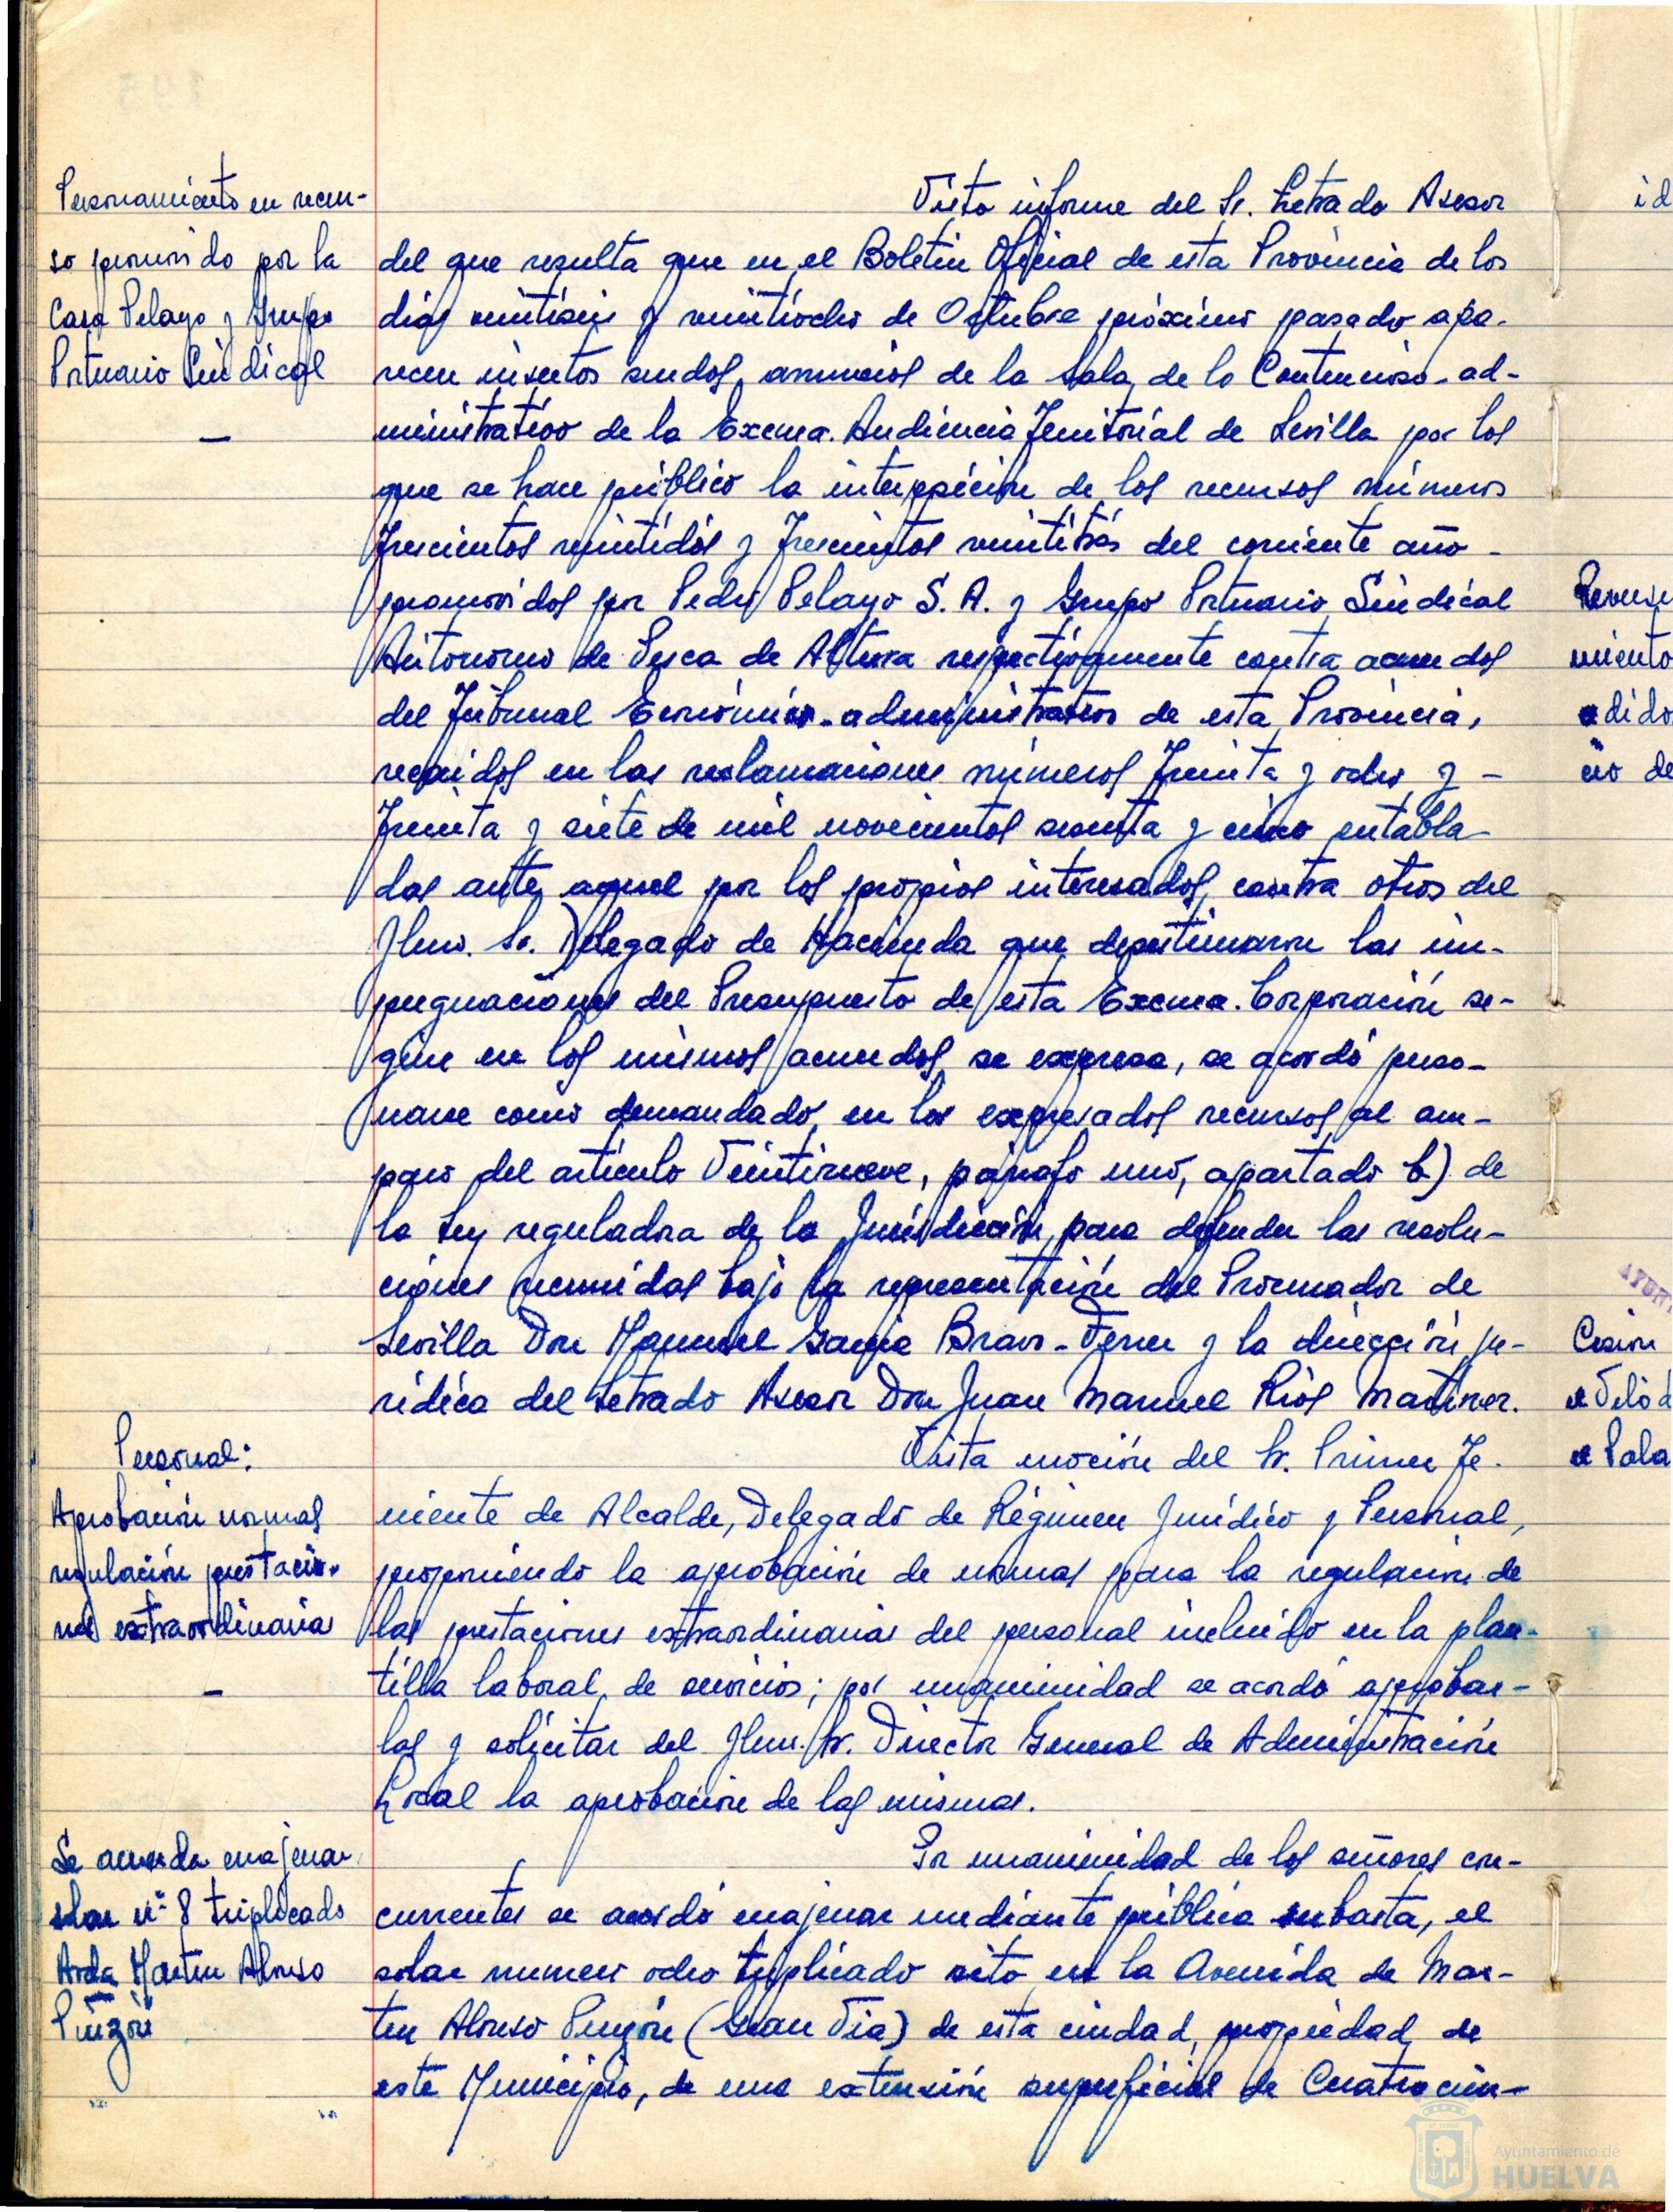 Personamiento en recur-
so promovido por la
Casa Pelayo y Grupo
Portuario Sindical
—
Visto informe del Sr. Letrado Asesor
del que resulta que en el Boletin Oficial de esta Provincia de los
dias veintiseis y veintiocho de Octubre próximo pasado apa-
recen insertos sendos anuncios de la Sala de lo Contencioso-ad-
ministrativo de la Excma. Audiencia Territorial de Sevilla por los
que se hace público la interposición de los recursos números
trescientos veintidós y trescientos veintitrés del corriente año -
promovidos por Pedro Pelayo S. A. y Grupo Portuario Sindical
Autonomo de Pesca de Altura respectivamente contra acuerdos
del Tribunal Económico-administrativo de esta Provincia,
recaidos en las reclamaciones números treinta y ocho y -
treinta y siete de mil novecientos sesenta y cinco entabla-
das ante aquel por los propios interesados, contra otros del
Ilmo. Sr. Delegado de Hacienda que desestimaron las im-
pugnaciones del Presupuesto de esta Excma. Corporación se-
gún en los mismos acuerdos se expresa, se acordó perso-
narse como demandado en los expresados recursos al am-
paro del artículo Veintinueve, párrafo uno, apartado b) de
la Ley reguladora de la Jurisdicción, para defender las resolu-
ciones recurridas bajo la representación del Procurador de
Sevilla Don Manuel Garcia Bravo-Ferrer y la dirección ju-
rídica del Letrado Asesor Don Juan Manuel Riós Martinez.
Personal:
Aprobación normas
regulación prestacio-
nes extraordinarias
—
Vista moción del Sr. Primer Te-
niente de Alcalde, Delegado de Régimen Jurídico y Personal,
proponiendo la aprobación de normas para la regulación de
las prestaciones extraordinarias del personal incluido en la plan-
tilla laboral de servicios; por unanimidad se acordó aprobar-
las y solicitar del Ilmo. Sr. Director General de Administración
Local la aprobación de las mismas.
Se acuerda enajenar
solar nº 8 triplicado
Avda Martin Alonso
Pinzón
Por unanimidad de los señores con-
currentes se acordó enajenar mediante pública subasta, el
solar numero ocho triplicado sito en la Avenida de Mar-
tin Alonso Pinzón (Gran Via) de esta ciudad, propiedad de
este Municipio, de una extensión superficial de Cuatrocien-
id
miento
dido
cio de
Cesión
Pala
Ayuntamiento de
HUELVA